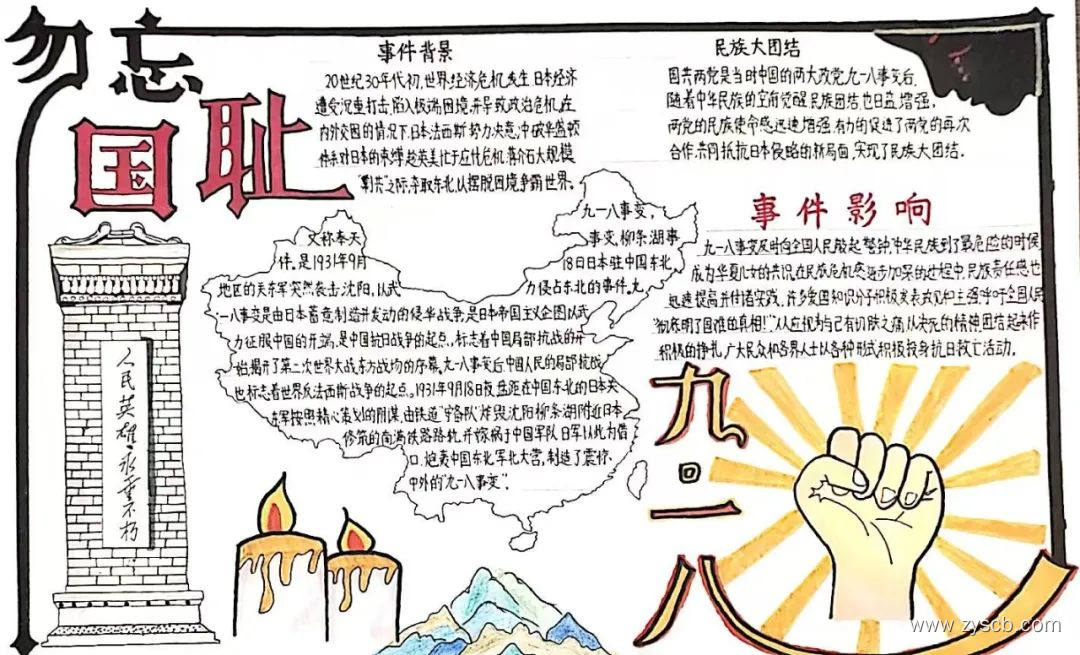 勿忘
国耻
事件背景
20世纪30年代初,世界经济危机发生,日本经济
遭受沉重打击,陷入极端困境,并导致政治危机,在
内外交困的情况下,日本法西斯势力决意冲破华盛顿
体系对日本的束缚,趁英美忙于应付危机,蒋介石大规模
"剿共"之际,夺取东北,以摆脱困境争霸世界。
民族大团结
国共两党是当时中国的两大政党,九一八事变后,
随着中华民族的空前觉醒,民族团结也日益增强,
两党的民族使命感迅速增强,有力的促进了两党的再次
合作,共同抵抗日本侵略的新局面,实现了民族大团结.
事件影响
九一八事变及时向全国人民敲起警钟,中华民族到了最危险的时候
成为华夏儿女的共识,在民族危机感逐步加深的过程中,民族责任感也
迅速提高并付诸实践,许多爱国知识分子积极发表意见和主张呼吁全国人民
"彻底明了国难的真相!"人人应视为与己有切肤之痛,以决死的精神,团结起来作
积极的挣扎,广大民众和各界人士以各种形式积极投身抗日救亡活动.
九一八事变,
又称奉天
事变,柳条湖事
件。是1931年9月
18日日本驻中国东北
地区的关东军突然袭击沈阳,以武
力侵占东北的事件.九
一八事变是由日本蓄意制造并发动的侵华战争,是日本帝国主义企图以武
力征服中国的开端,是中国抗日战争的起点,,标志着中国局部抗战的开
始,揭开了第二次世界大战东方战场的序幕.九一八事变后中国人民的局部抗战
也标志着世界反法西斯战争的起点.1931年9月18日夜,盘踞在中国东北的日本关
东军按照精心策划的阴谋,由铁道"守备队"炸毁沈阳柳条湖附近日本
修筑的南满铁路路轨,并嫁祸于中国军队.日军以此为借
口,炮轰中国东北军北大营,制造了震惊
中外的"九一八事变".
人民英雄永垂不朽
九
一
八
www.zyscb.com